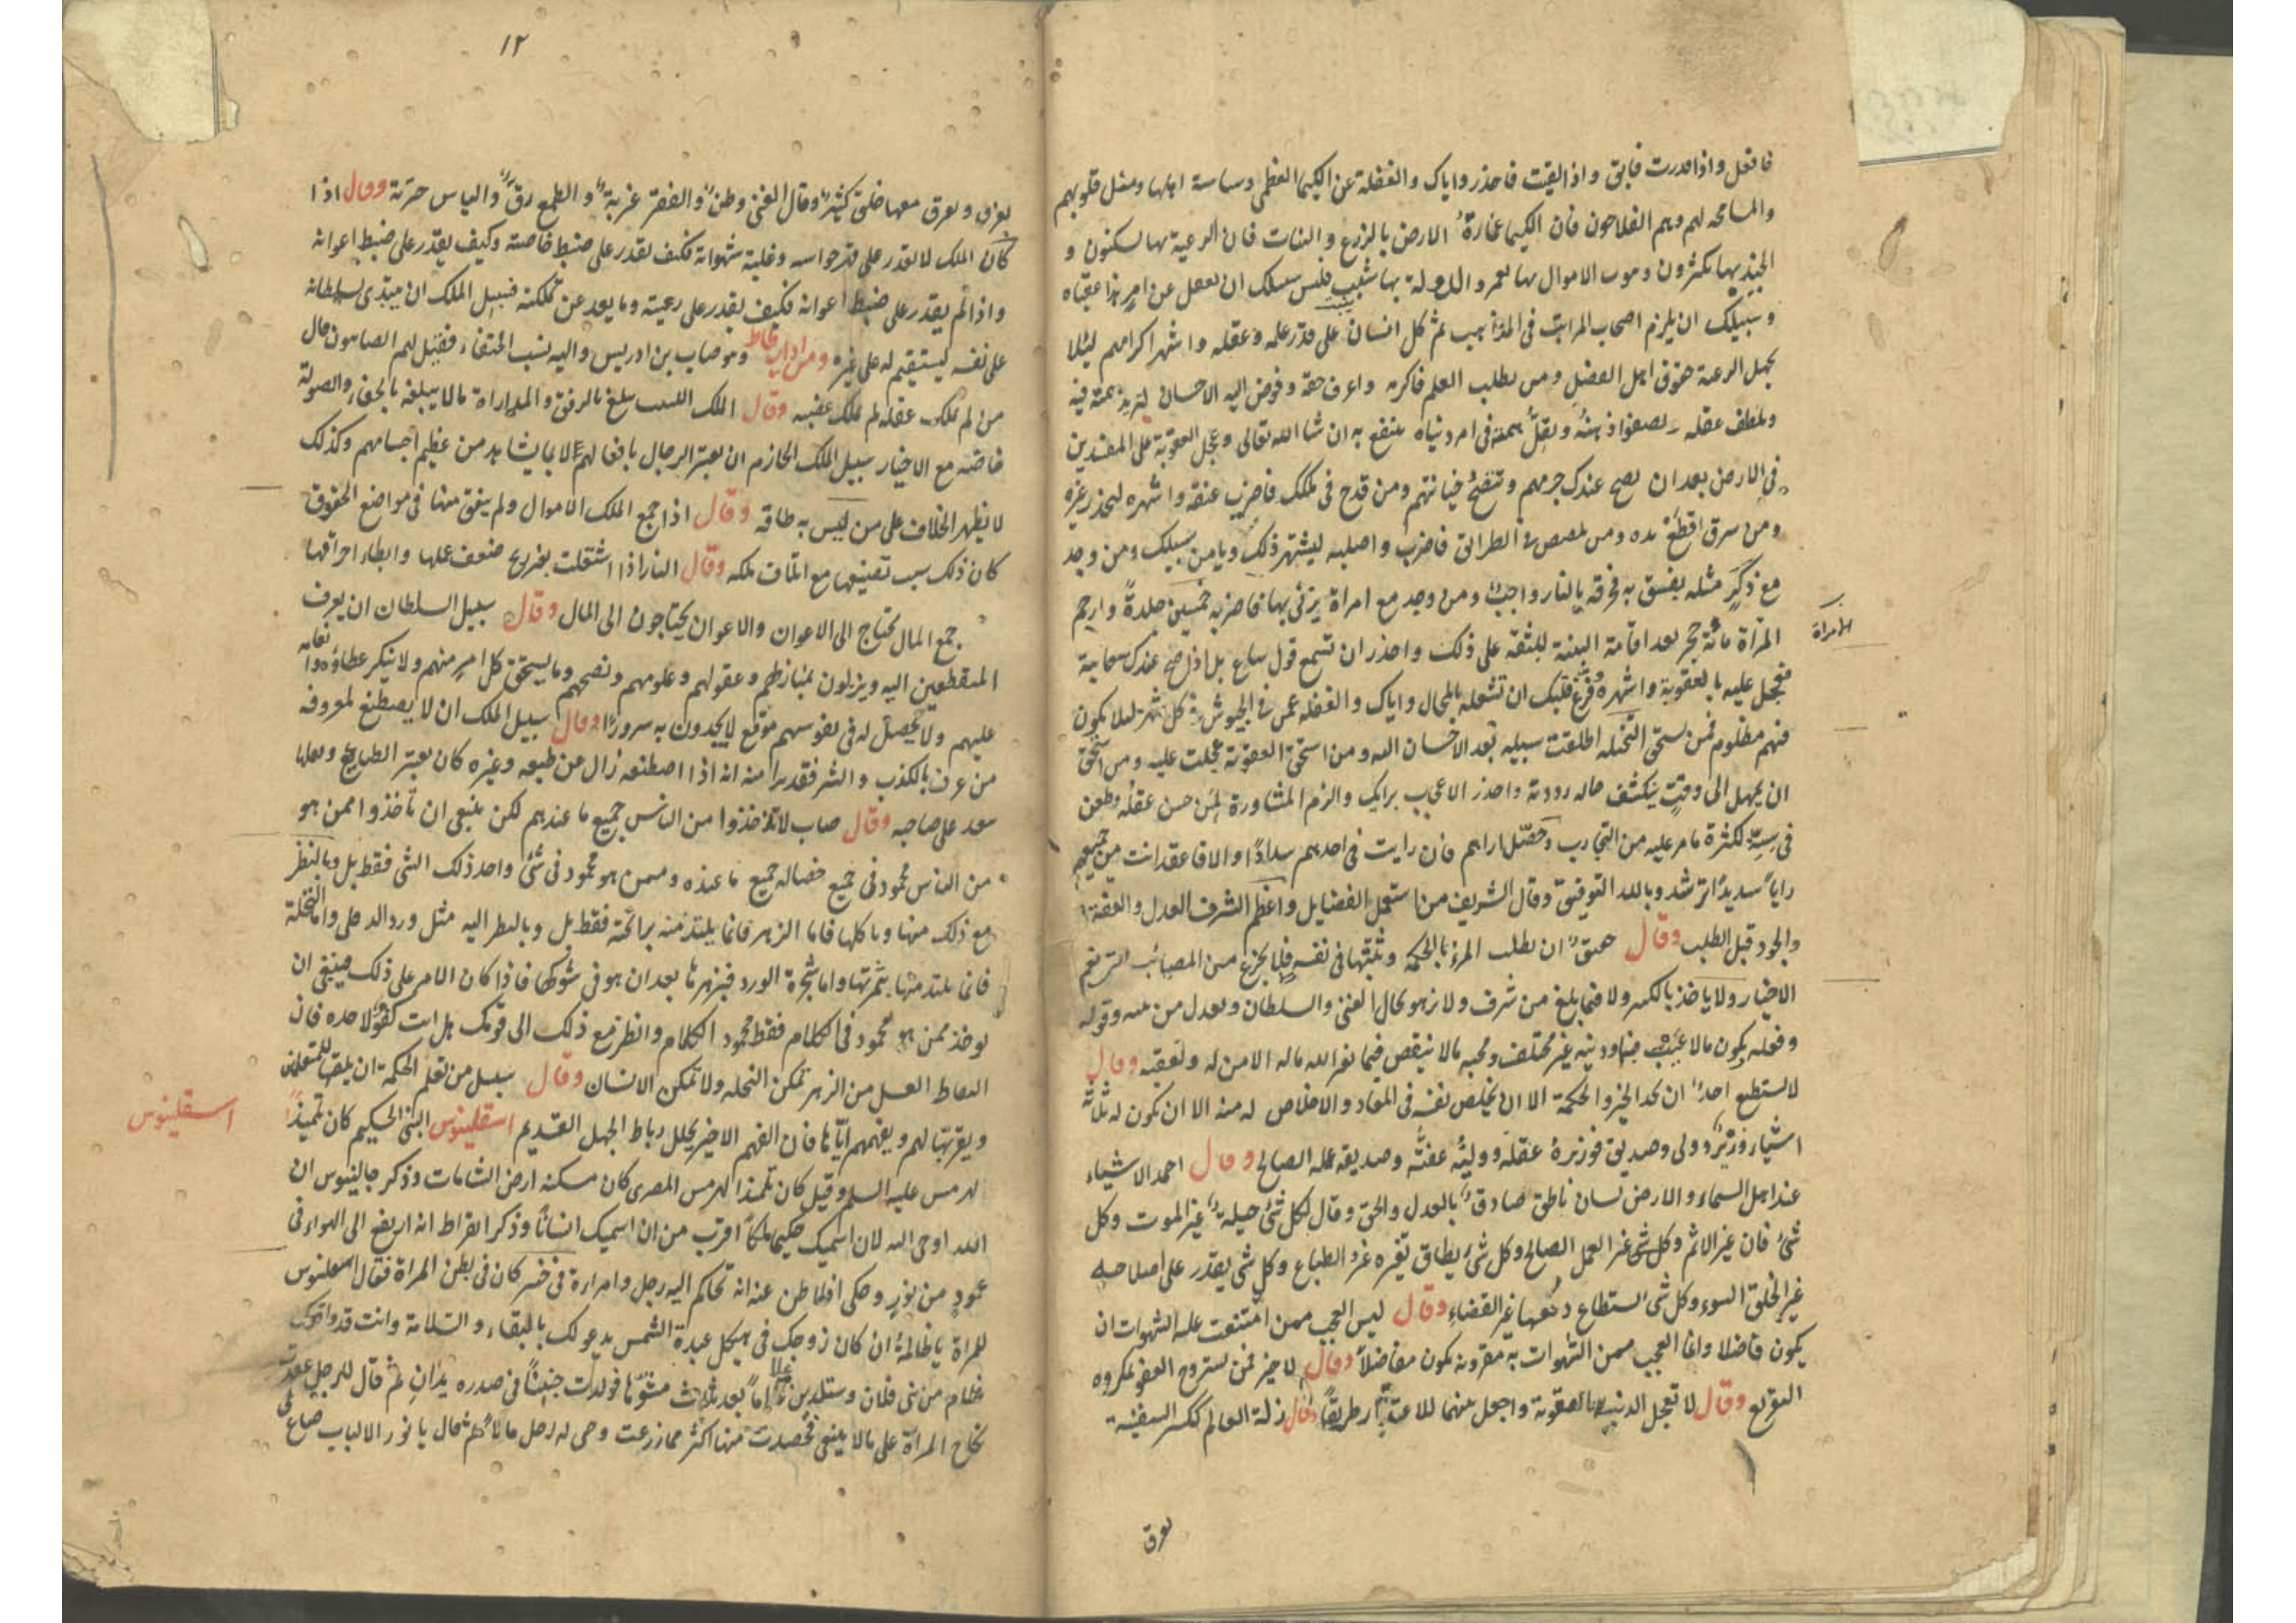 فافعل واذا قدرت فابق واذا لقيت فاحذر واياك والغفلة عن الكيميا العظمى وسياسة اهلها ومثل قلوبهم
والمسامحة لهم وهم الفلاحون فان الكيميا عمارة الارض بالزرع والنبات فان الرعية بها يسكنون و
الجند بها يكثرون وبيوت الاموال بها تعمر والدولة بها تثبت فليس سبيلك ان تغفل عن امر هذا عقباه
وسبيلك ان يلزم اصحاب المراتب في المذاهب ثم كل انسان على قدر علمه وعقله واشهر اكرامهم ليلا
يجهل الرعية حقوق اهل الفضل ومن يطلب العلم فاكرمه واعرف حقه وفوض اليه الاحسان ليزيد همته فيه
ويلطف عقله ويصفوا ذهنه ويقل همه في امر دنياه ينتفع به ان شا الله تعالى وعجل العقوبة على المفسدين
في الارض بعد ان يصح عندك جرمهم وتتضح خيانتهم ومن قدح في ملكك فاضرب عنقه واشهره ليحذر غيره
ومن سرق اقطع يده ومن تلصص في الطرائق فاضرب واصلبه ليشتهر ذلك ويامن سبيلك ومن وجد
مع ذكر مثله يفسق به فحرقه بالنار واجبه ومن وجد مع امراة يزني بها فاضربه خمسين جلدة وارجم
المرأة مائة حجر بعد اقامة البينة للثقة على ذلك واحذر ان تسمع قول ساع بل اذا صح عندك سعايته
فعجل عليه بالعقوبة واشهره وفرغ قلبك ان تشغله بالمحال واياك والغفلة عمن في الجيوش في كل شهر ليلا يكون
فيهم مظلوم فمن يستحق التخلية اطلقت سبيله بعد الاحسان اليه ومن استحق العقوبة عجلت عليه ومن استحق
ان يمهل الى وقت ينكشف حاله رددته واحذر الاعجاب برايك والزم المشاورة لمن حسن عقله وطعن
في سنه لكثرة ما مر عليه من التجارب وحصل ارايهم فان رايت في احدهم سدادا والا فاعقد انت من جميعهم
رايا سديدا ترشد وبالله التوفيق وقال الشريف من استعمل الفضايل واعظم الشرف العدل والعفة
والجود قبل الطلب وقال حقيق ان يطلب المرء بالحكمة ويثبتها في نفسه فلا يجزع من المصائب التي تعم
الاخيار ولا ياخذ بالكبر ولا فيما بلغ من شرف ولا زهو بحال الغنى والسلطان ويعدل من نيته وقوله
وفعله يكون مالا عيب فيه ودينه غير مختلف ومحبه مالا ينقص فيما نفر الله ماله الامن له وتعقبه وقال
لا يستطيع احد ان يجد الخير والحكمة الا ان يخلص نفسه في المعاد والاخلاص له منه الا ان يكون له ثلثة
اشياء وزير وولي وصديق فوزيره عقله ووليه عفته وصديقه عمله الصالح وقال احمد الاشياء
عند اهل السماء والارض لسان ناطق صادق بالعدل والحق وقال لكل شئ حيلة غير الموت وكل
شئ فان غير الاثم وكل شئ غير العمل الصالح وكل شئ يطاق تغيره غير الطباع وكل شئ يقدر على اصلاحه
غير الخلق السوء وكل شئ يستطاع دفعها غير القضاء وقال ليس العجب ممن امتنعت عليه الشهوات ان
يكون فاضلا وانما العجب ممن الشهوات به مقرونه يكون مفاضلا وقال لا خير فمن يستروح العفو بمكروه
التقريع وقال لا تعجل الذنب بالعقوبة واجعل بينهما للاعتذار طريقا وقال زلة العالم ككسر السفينة
تغرق
الامراة
١٢
تغرق ويغرق معها خلق كثير وقال الغنى وطن والفقر غربة والطمع رق والياس حرية وقال اذا
كان الملك لا يقدر على قهر حواسه وغلبة شهواته فكيف يقدر على ضبط خاصته وكيف يقدر على ضبط اعوانه
واذا لم يقدر على ضبط اعوانه فكيف يقدر على رعيته وما يعد عن مملكته فسبيل الملك ان يبتدي بسلطانه
على نفسه ليستقيم له على غيره ومن اداب طاط وهو صاب بن ادريس واليه نسب الحنفاء فقيل لهم الصابون قال
من لم يملك عقله لم يملك غضبه وقال الملك اللبيب يبلغ بالرفق والمداراة مالا يبلغه بالجفاء والصولة
خاصة مع الاخيار سبيل الملك الحازم ان يعتبر الرجال بافعالهم لا بما يشاهد من عظيم اجسامهم وكذلك
لا يظهر الخلاف على من ليس به طاقه وقال اذا جمع الملك الاموال ولم ينفق منها في مواضع الحقوق
كان ذلك سبب تضييعها مع اتلاف ملكه وقال النار اذا اشتعلت بغير ريح ضعف عملها وابطاء احراقها
جمع المال يحتاج الى الاعوان والاعوان يحتاجون الى المال وقال سبيل السلطان ان يعرف
المنقطعين اليه وينزلون بمنازلهم وعقولهم وعلومهم ونصحهم وما يستحق كل امر منهم ولا يتكبر عطاؤه
عليهم ولا يحصل له في نفوسهم موقع لا يجدون به سرورا وقال سبيل الملك ان لا يصطنع لمعروفه
من عرف بالكذب والشر فقد برا منه انه اذا اصطنعه زال من طبعه وغيره كان يعتبر الطبايع وفعلها
يعد على صاحبه وقال صاب لا تاخذوا من الناس جميع ما عندهم لكن ينبغي ان تاخذوا ممن هو
من الناس محمود في جميع خصاله جميع ما عنده وممن هو محمود في شئ واحد ذلك الشئ فقط بل وبالنظر
مع ذلك منها وباكلها فاما الزهر فانما يلتذ منه برائحة فقط بل وبالنظر اليه مثل ورد الدفلى واما النخلة
فانما يلتذ منها بثمرتها واما شجرة الورد فبزهرها بعد ان هو في شوكها فاذا كان الامر على ذلك فينبغي ان
يوخذ ممن هو محمود في الكلام فقط محمود الكلام وانظر مع ذلك الى قومك هل انت كفؤ لاخذه فان
التقاط العسل من الزهر تمكن النحله ولا تمكن الانسان وقال سبيل من تعلم الحكمة ان يلقيها للمتعلمين
ويقربها لهم ويفهمهم اياها فان الفهم الاخير يحلل رباط الجهل القديم اسقلينوس النبي الحكيم كان تلميذا
لهرمس عليه السلم وقيل كان تلميذا لهرمس المصري كان مسكنه ارض الشامات وذكر جالينوس ان
الله اوحى اليه لان اسميك حكيما ملكا اقرب من ان اسميك انسانا وذكر ابقراط انه ارتفع الى الهواء في
عمود من نور وحكى افلاطن عنه انه تحاكم اليه رجل وامراة في خسر كان في بطن المراة فقال اسقلينوس
للمراة يا ظالمة ان كان زوجك في هيكل عبدة الشمس يدعو لك بالبقاء والسلامة وانت قد واقعت
غلام من بني فلان وستلدين غلاما بعد ثلاث مشوها فولدت جنينا في صدره يدان ثم قال للرجل عقدت
نكاح المراة على مالا ينبغي فحصدت منها اكثر مما زرعت وحى له رجل مالا ثم قال يا نور الالباب ضاع لي
اسقلينوس